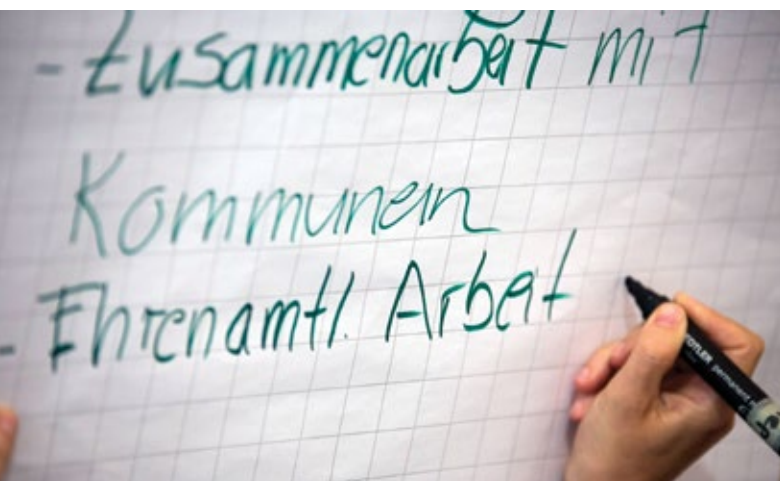 - Zusammenarbeit mit
Kommunen
- Ehrenamtl. Arbeit
STAEDTLER permanent